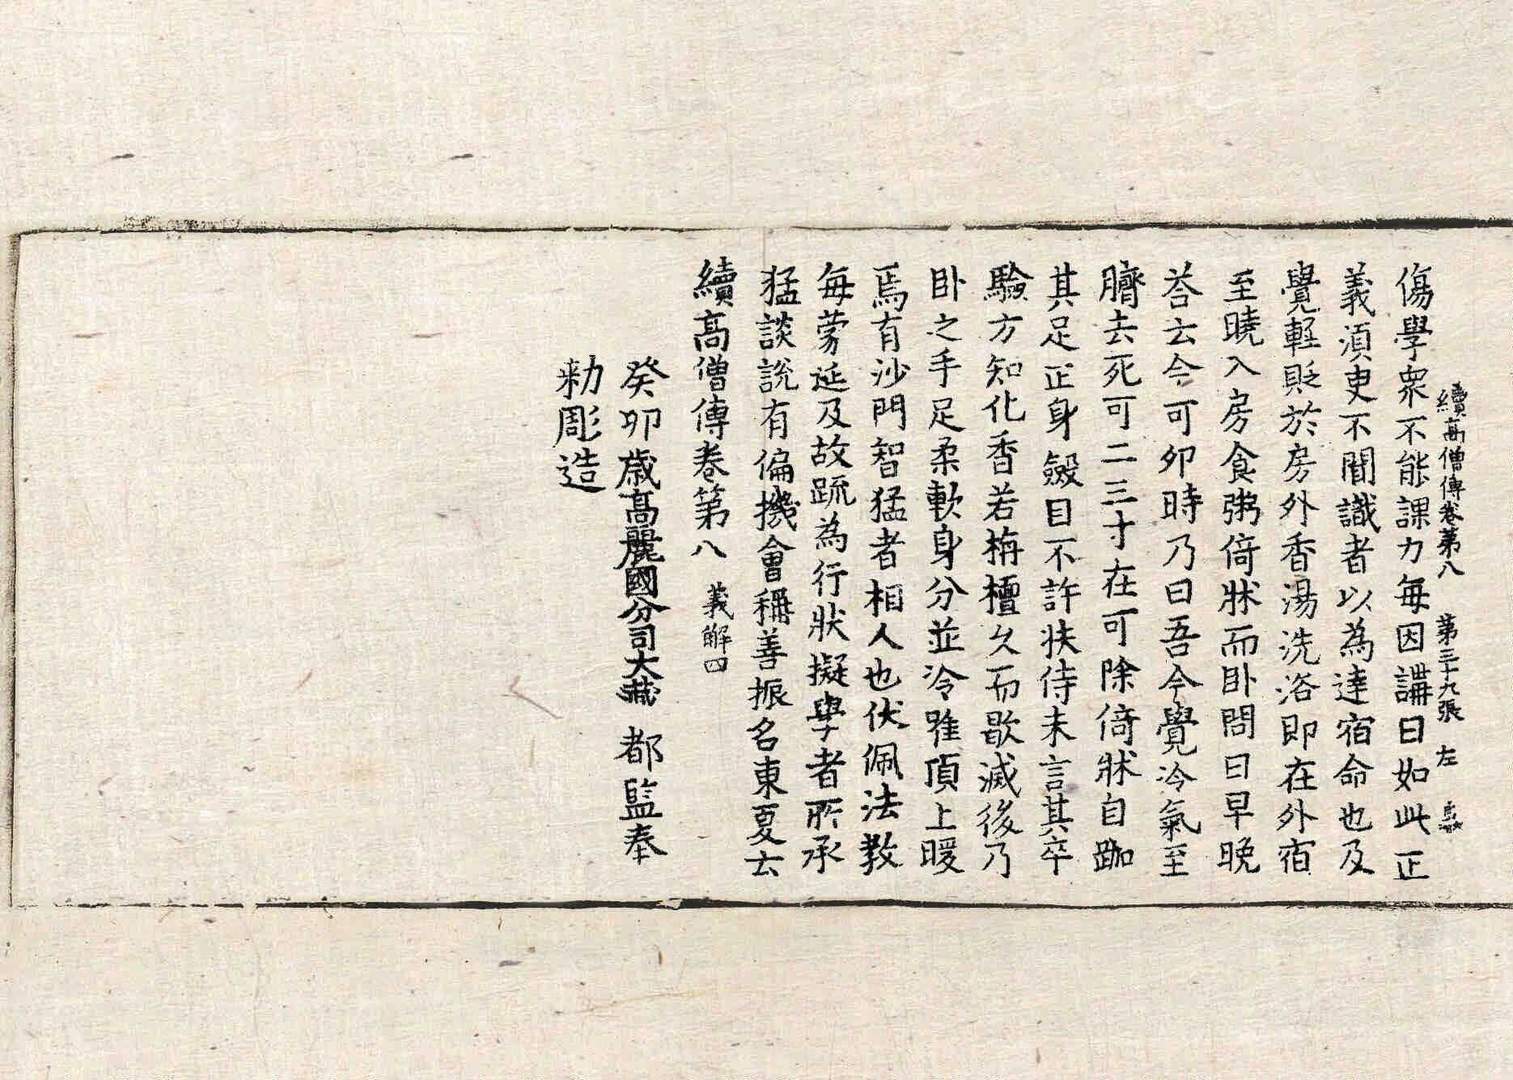 續高僧傳卷第八 第三十九張 左
傷學衆不能課力每因講日如此正
義湏臾不聞識者以為達宿命也及
覺輕貶於房外香湯洗浴即在外宿
至曉入房食粥倚牀而卧問曰早晚
荅云今可夘時乃曰吾今覺冷氣至
臍去死可二三寸在可除倚牀自跏
其足正身斂目不許扶侍未言其卒
驗方知化香若栴檀久而歇滅後乃
卧之手足柔軟身分並冷唯頂上暖
焉有沙門智猛者相人也伏佩法教
每蒙延及故䟽為行狀擬學者所承
猛談說有偏機會稱善振名東夏云
續高僧傳卷第八 義解四
癸卯歳高麗國分司大藏都監奉
勑彫造